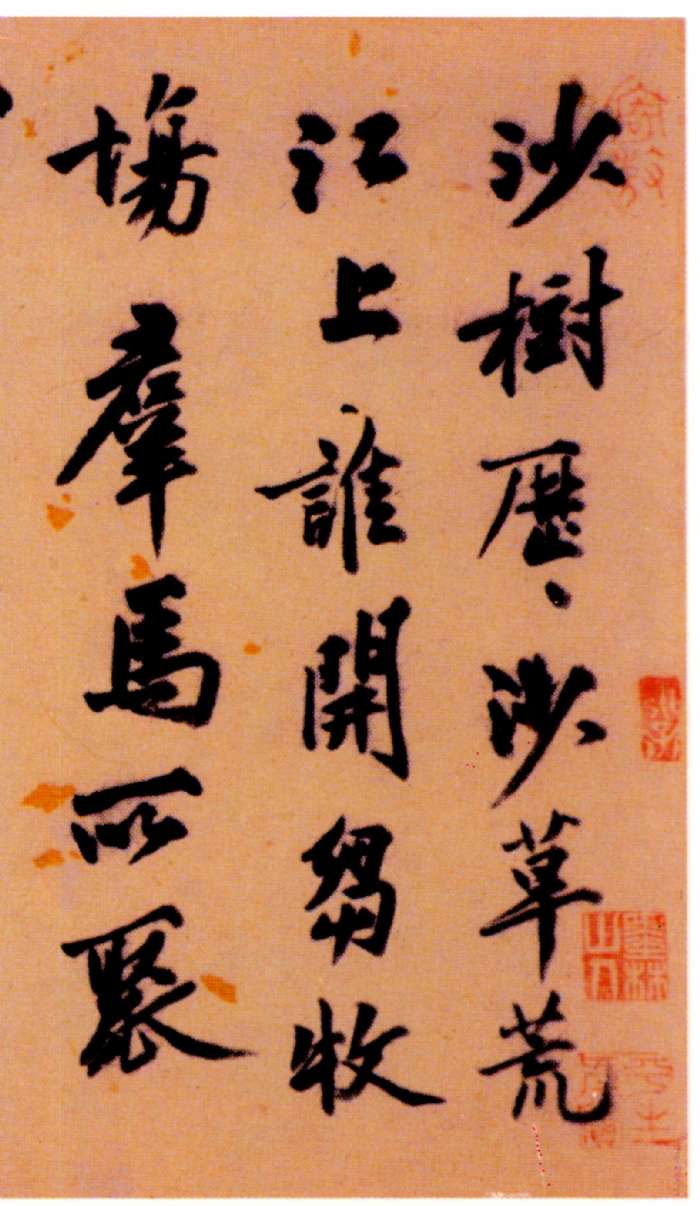 沙樹歷、沙草荒
江上誰開芻牧
場羣馬所聚